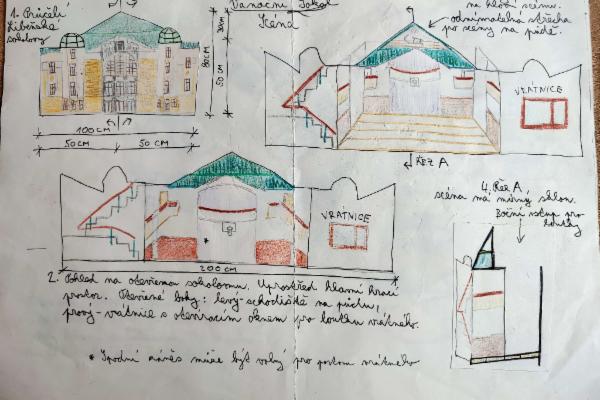 1. Průčelí
Libeňské
sokolovny
Vánoční Sokol
Scéna
na hlavní scénu.
odnímatelná střecha
pro scény na půdě.
30CM
50 CM
80CM
100CM
50CM
50 CM
VRÁTNICE
ŘEZ A
VRÁTNICE
200CM
4. Řez A,
scéna má mírný sklon.
Boční vstup pro
loutky
2. Pohled na otevřenou sokolovnu. Uprostřed hlavní hrací
prostor. Otevřené boky: levý-schodiště na půdu,
pravý-vrátnice s otevíracím oknem pro loutku vrátného.
* Spodní může být volný pro vrátného